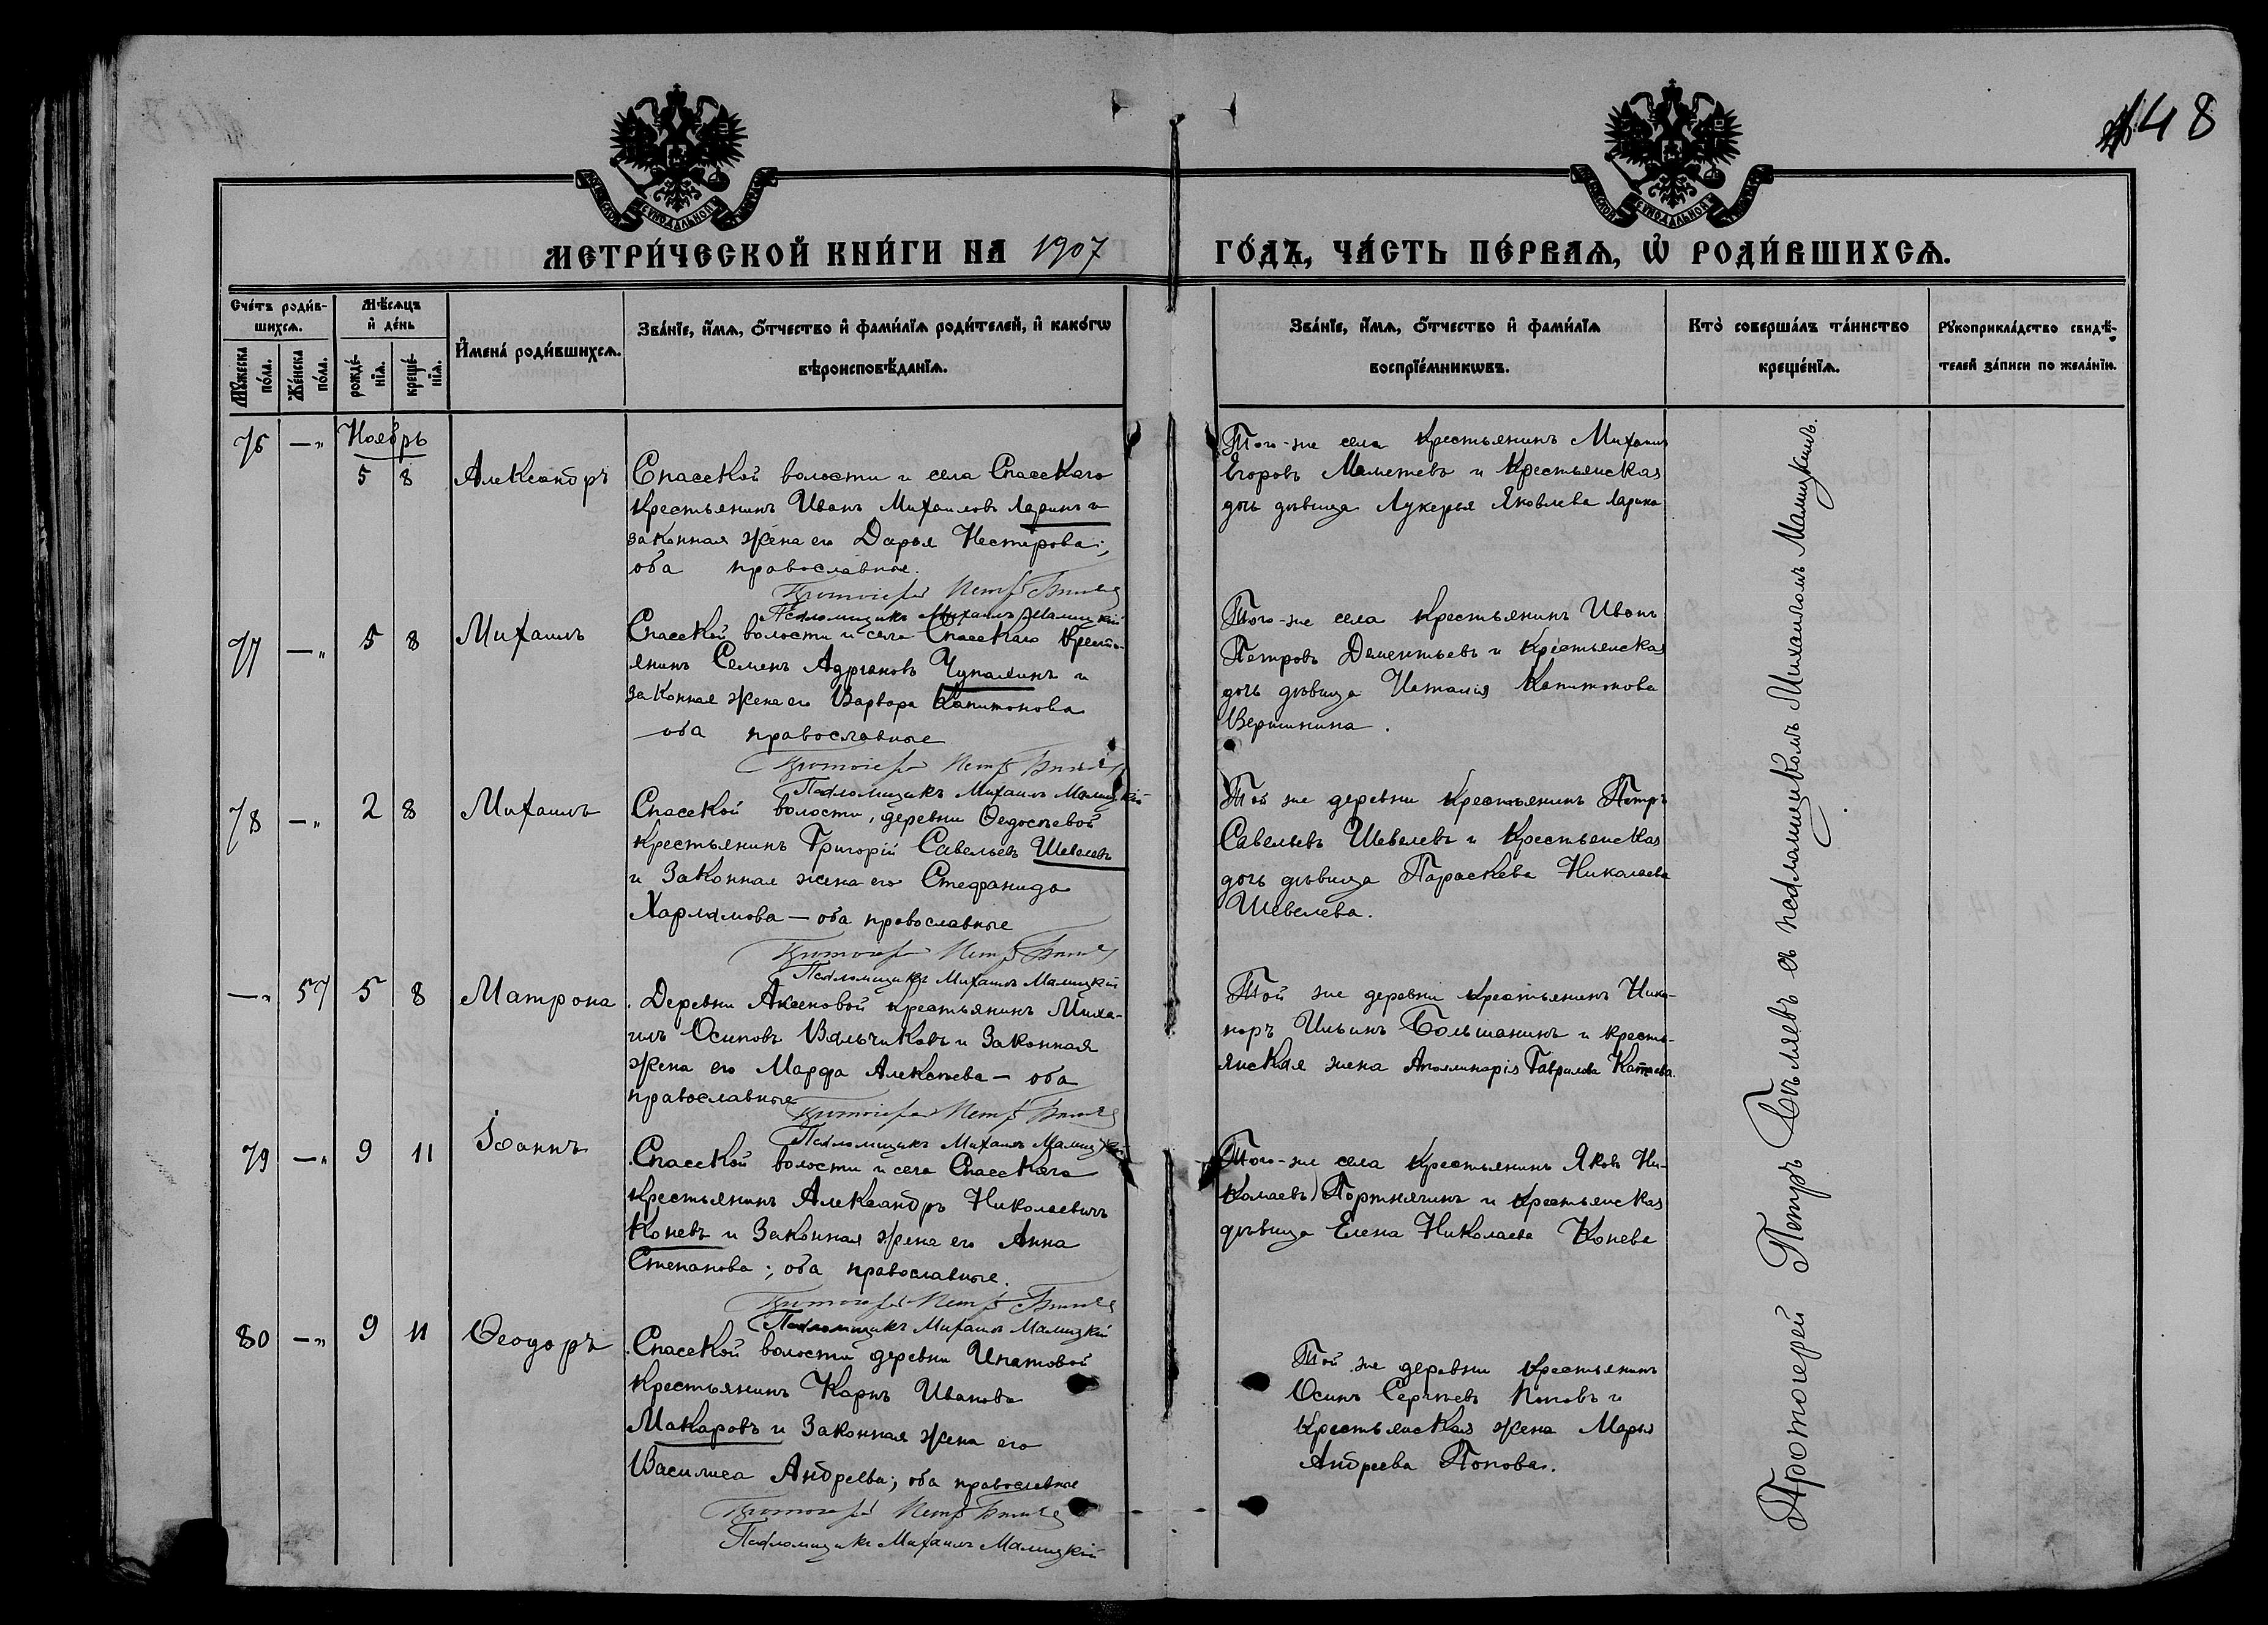 148
МЕТРИ́ЧЕСКОЙ КНИ́ГИ НА 1907 ГО́ДЪ, ЧА́СТЬ ПЕ́РВАѦ, Ѡ҆ РОДИ́ВШИХСѦ.
Сче́тъ роди́в-
шихсѧ.
Мꙋ́жеска по́ла.
Же́нска по́ла.
Мѣ́сѧцъ
и҆ де́нь
рожде́-
нїѧ.
креще́-
нїѧ.
И҆мена̀ роди́вшихсѧ.
Зва́нїе, и҆́мѧ, ѻ҆́тчество и҆ фами́лїѧ роди́телей, и҆ како́гѡ
вѣроисповѣ́данїѧ.
Зва́нїе, и҆́мѧ, ѻ҆́тчество и҆ фами́лїѧ
воспрїе́мникѡвъ.
Кто̀ соверша́лъ та́инство
креще́нїѧ.
Рꙋкоприкла́дство свидѣ́-
телей за́писи по жела́нїю.
76 —„ Ноябрь
5 8 Александръ
Спасской волости и села Спасскаго
крестьянинъ Иванъ Михаиловъ Ларинъ и
законная жена его Дарья Нестерова;
оба православные.
Протоіерей Петръ Бѣляевъ
Псаломщикъ Михаилъ Малицкій
Того-же села крестьянинъ Михаилъ
Егоровъ Маметевъ и крестьянская
дочь дѣвица Лукерья Яковлева Ларина
77 —„ 5 8 Михаилъ
Спасской волости и села Спасскаго кресть-
янинъ Семенъ Адріановъ Чупалинъ и
законная жена его Варвара Капитонова
оба православные
Протоіерей Петръ Бѣляевъ
Псаломщикъ Михаилъ Малицкій
Того-же села крестьянинъ Иванъ
Петровъ Дементьевъ и крестьянская
дочь дѣвица Наталія Капитонова
Вершинина.
78 —„ 2 8 Михаилъ
Спасской волости, деревни Ѳедосѣевой
крестьянинъ Григорій Савельевъ Шевелевъ
и законная жена его Стефанида
Харламова — оба православные
Протоіерей Петръ Бѣляевъ
Псаломщикъ Михаилъ Малицкій
Той же деревни крестьянинъ Петръ
Савельевъ Шевелевъ и крестьянская
дочь дѣвица Параскева Николаева
Шевелева.
—„ 57 5 8 Матрона
Деревни Аксеновой крестьянинъ Миха-
илъ Осиповъ Вальчиковъ и законная
жена его Марфа Алексѣева — оба
православные
Протоіерей Петръ Бѣляевъ
Псаломщикъ Михаилъ Малицкій
Той же деревни крестьянинъ Ника-
норъ Ильинъ Большанинъ и кресть-
янская жена Аполлинарія Гаврилова Катаева.
79 —„ 9 11 Іоаннъ
Спасской волости и села Спасскаго
крестьянинъ Александръ Николаевичъ
Коневъ и законная жена его Анна
Степанова; оба православные.
Протоіерей Петръ Бѣляевъ
Псаломщикъ Михаилъ Малицкій
Того-же села крестьянинъ Яковъ Ни-
колаевъ Портнягинъ и крестьянская
дѣвица Елена Николаева Конева
80 —„ 9 11 Ѳеодоръ
Спасской волости деревни Ипатовой
крестьянинъ Карпъ Ивановъ
Макаровъ и законная жена его
Василиса Андреева; оба православные
Протоіерей Петръ Бѣляевъ
Псаломщикъ Михаилъ Малицкій
Той же деревни крестьянинъ
Осипъ Сергѣевъ Поповъ и
крестьянская жена Марья
Андреева Попова.
Протоіерей Петръ Бѣляевъ съ псаломщикомъ Михаиломъ Малицкимъ.